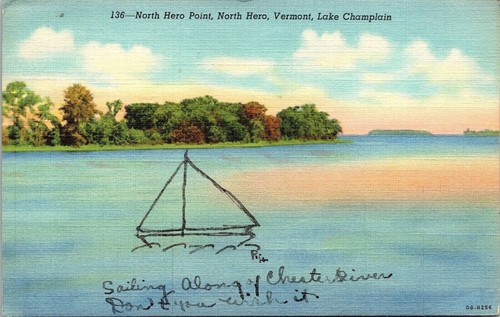 136—North Hero Point, North Hero, Vermont, Lake Champlain
Sailing Along Chester River
Don't you wish it
OB-H256